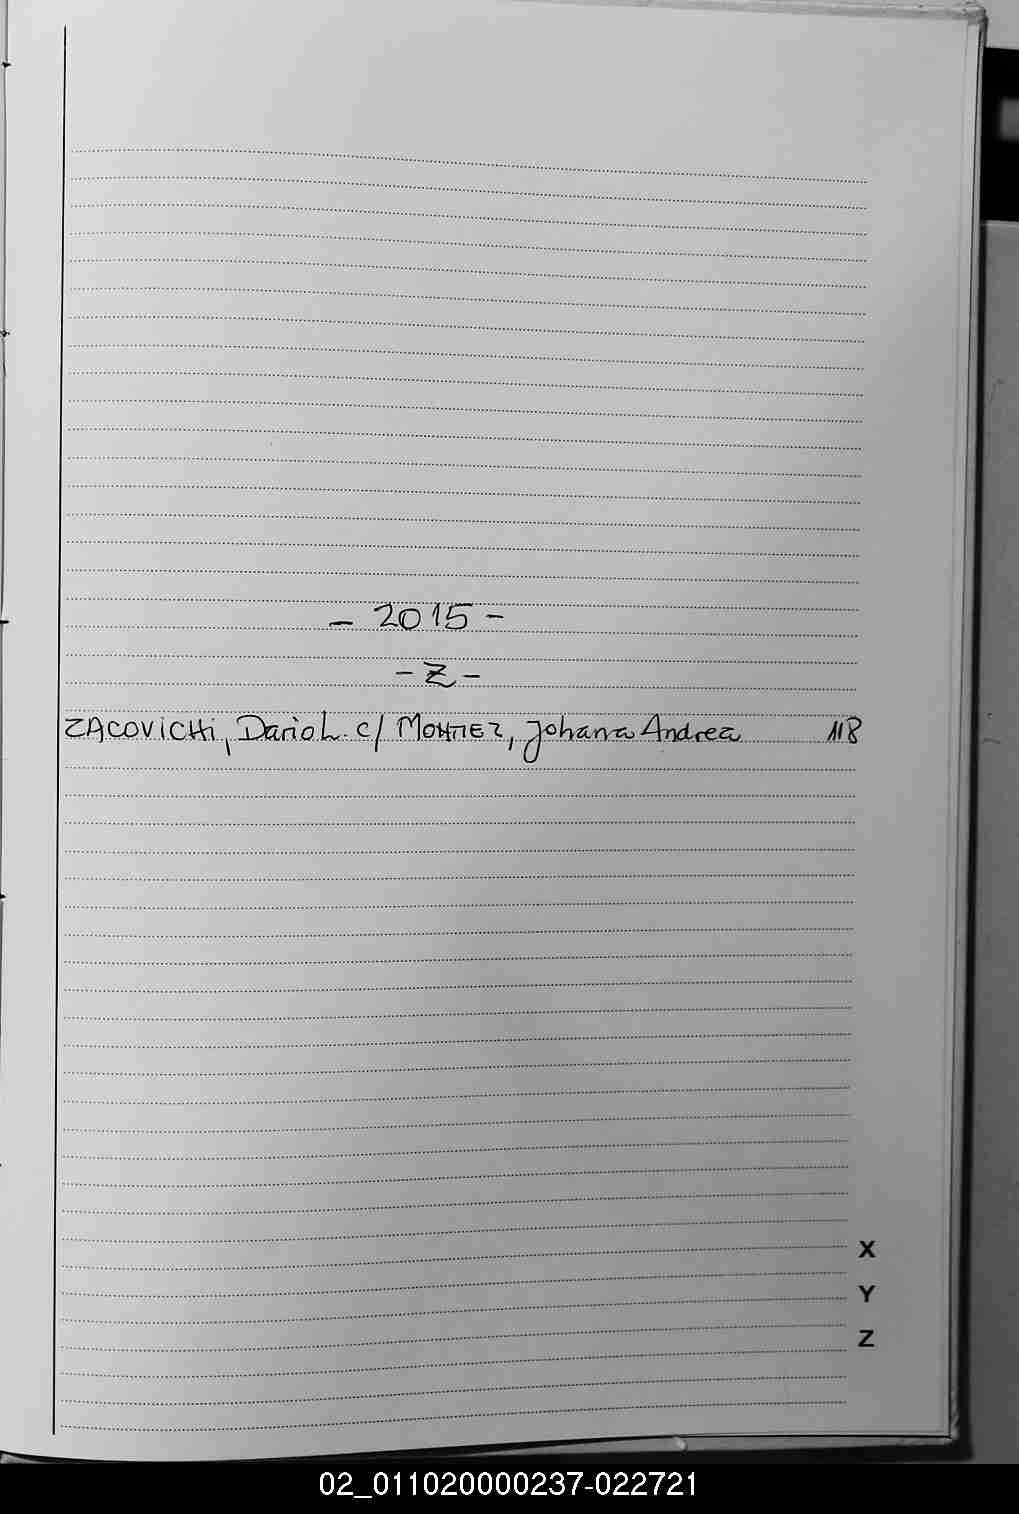 - 2015 -
- Z -
ZACOVICHI, Dario L. c/ MONTIEZ, Johana Andrea 118
X
Y
Z
02_011020000237-022721